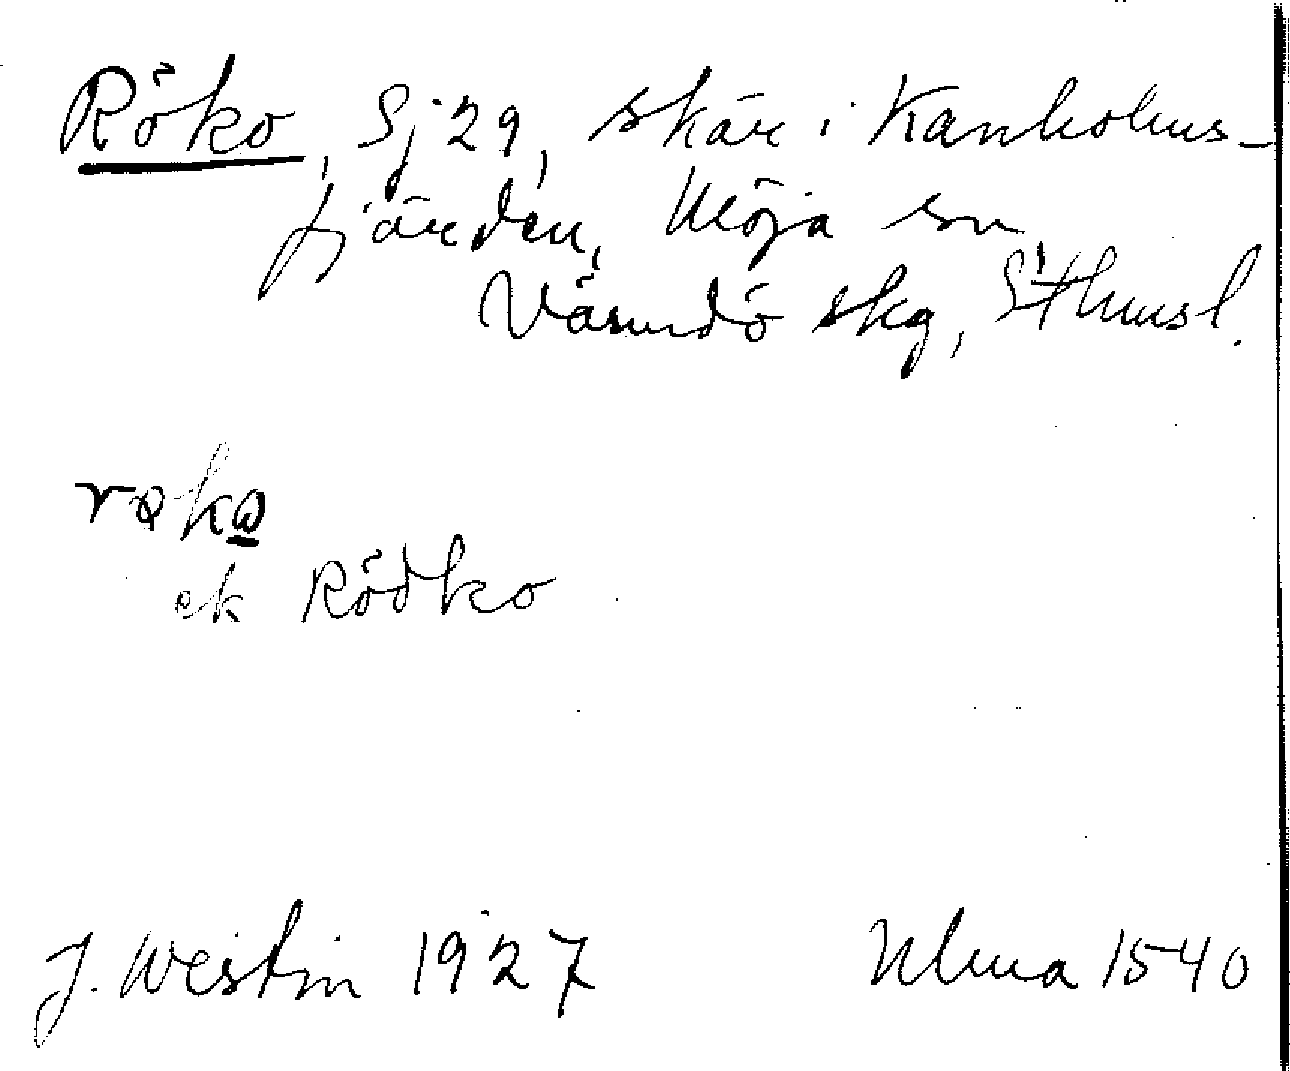 Röko, Sj 29, skär i Kanholms-
fjärden, Möja sn
Värmdö skg, Sthmsl.
røkω
ek Rödko
J. Westin 1927 Ulma 1540